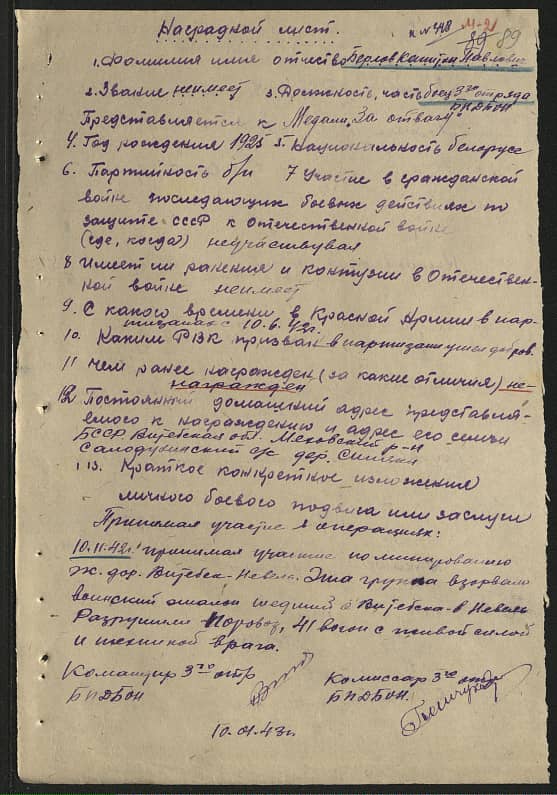 к № 448 М-21
89 89
Наградной лист.
1. Фамилия имя отчество Берлов Павлович
2. Звание неимеет 3. Должность, часть боец 3го отряда
БПДБОН
Представляется к Медали "За отвагу"
4. Год рождения 1925 5. Национальность белорус
6. Партийность б/п 7 Участие в гражданской
войне последающих боевых действиях по
защите СССР к Отечественной войне
(где, когда) неучаствувал
8 Имеет ли ранения и контузии в Отечествен-
ной войне неимеет
9. С какого времени в Красной Армии в пар-
тизанах с 10.6.42г.
10. Каким РВК призван в партизаны ушел добров.
11 чем ранее награжден (за какие отличия) не-
награжден
12 Постоянный домашний адрес представля-
емого к награждению и адрес его семьи
БССР Витебская обл. Меховский р-н
с/с дер.
13. Краткое конкретное изложения
личного боевого подвига или заслуги
Принимая участие в операциях:
10.11.42г. принимая участие по минированию
ж. дор. Витебск-Невель. Эта группа взорвала
воинский эшалон шедший с Витебска в Невель
Разрушили поровоз, 41 вагон с живой силой
и техникой врага.
Командир 3го отр Комиссар 3го отр
БПДБОН БПДБОН
10.01.43г.